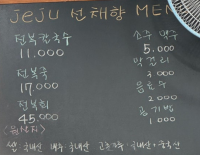 JeJu 선채향 MEN
전복칼국수
11.000
전복죽
17000
전복회
45000
<원산지>
소주 맥주
5.000
막걸리
3000
음료수
2000
공기밥
1000
쌀 국내산 배추 국내산 고춧가루 국내산 + 중국산